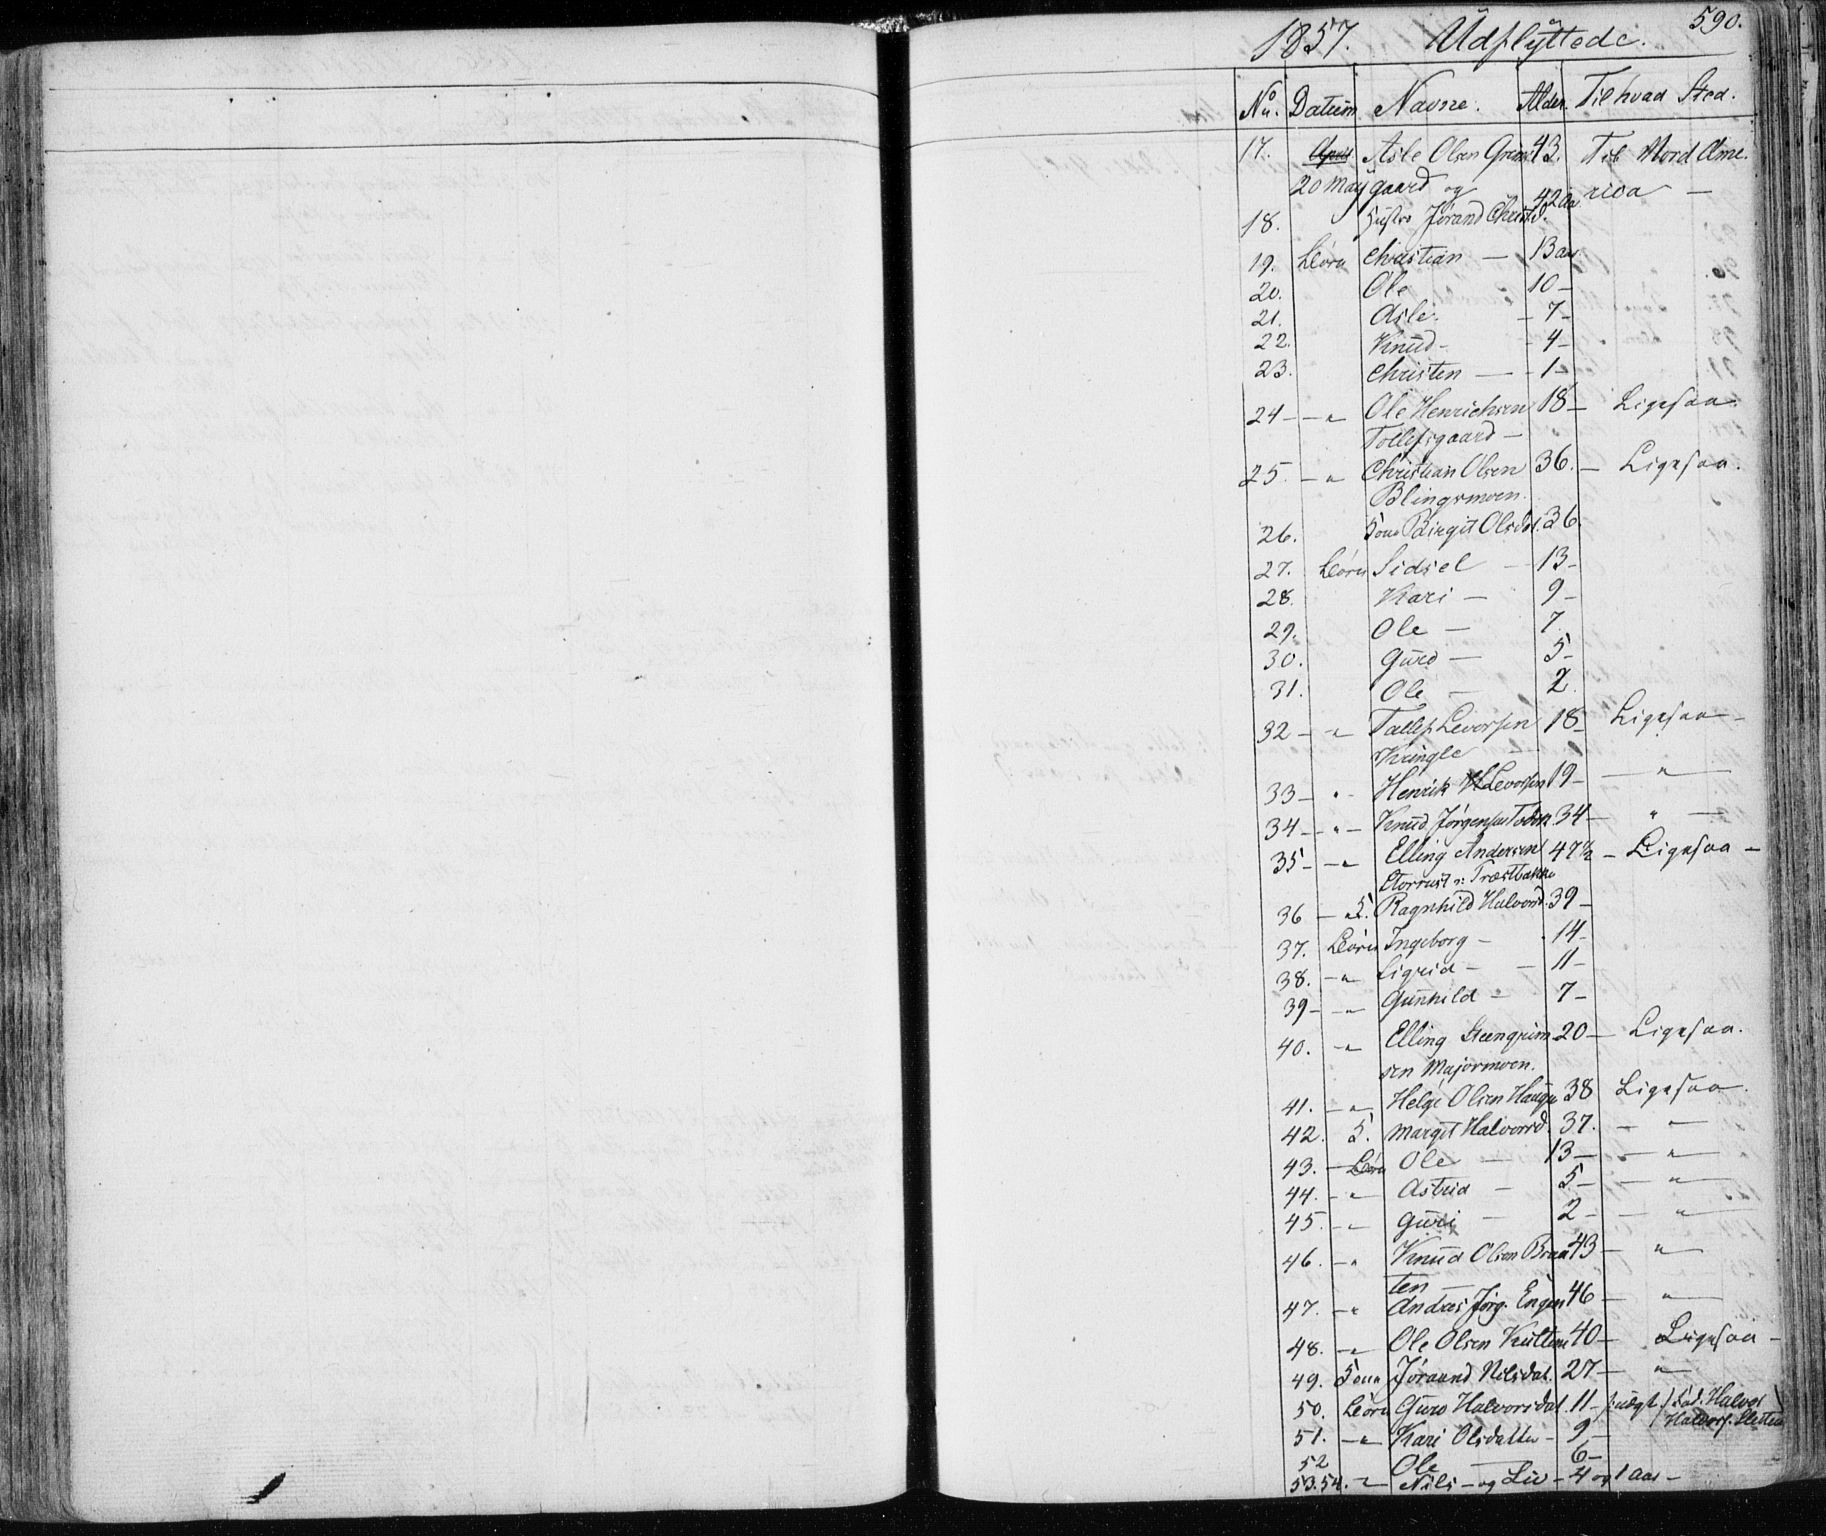 590.
1857. Udflyttede.
No. Datum Navne. Alder. Til hvad Sted.
17. April Asle Olsen Grims 43. Til Nord Ame
20 May gaard og rica —
18. Hustro Jørand Christd. 42 aar
19. Børn Christian — 13 aar
20. Ole 10 —
21. Asle. — 7 —
22. Knud — 4 —
23. Christen — 1 —
24 — " Ole Henrichsen 18 — Ligesaa.
Tollefsgaard —
25. — " Christian Olsen 36. — Ligesaa.
Blingsmoen.
26. Kone Birgit Olsdat. 36.
27. Børn Sidsel — 13 —
28. Kari — 9 —
29. Ole — 7
30. Guro — 5 —
31. Ole — 2.
32 — " Tollef Levorsen 18 — Ligesaa —
Kringle
33 — " Henrik Levorsen 19 — — " —
34 — " — Knud Jørgensen 34 — " —
35 — " Elling Andersen 47½ — Ligesaa —
36 — " K. Ragnhild Halvord. 39 —
37. Børn Ingeborg — 14 —
38. — " Sigrid — 11 —
39 — " Gunhild — 7 —
40. — " Elling Steengrim 20 — Ligesaa.
sen Majormoen.
41. — " Helge Olsen Haugen 38 Ligesaa.
42. K. Margit Halvorsd. 37. — " —
43. — Børn Ole — 13 — — " —
44. — " Astrid — 5 — — " —
45. — " Guri — 2 — — " —
46. — " Knud Olsen Braa 43 — " —
ten —
47. — " Andres Jørg. Engen 46 — — " —
48. — " Ole Olsen 40 — Ligesaa —
49. Kone Jøraand Nilsdat. 27 — " —
50. Børn Guro Halvorsdat. 11 — Halvor
Halvors.
51. — " Kari Olsdatter — 9 —
52 Ole — 6 —
53. 54. — " Nils — og Liv — 4 og 1 Aar —